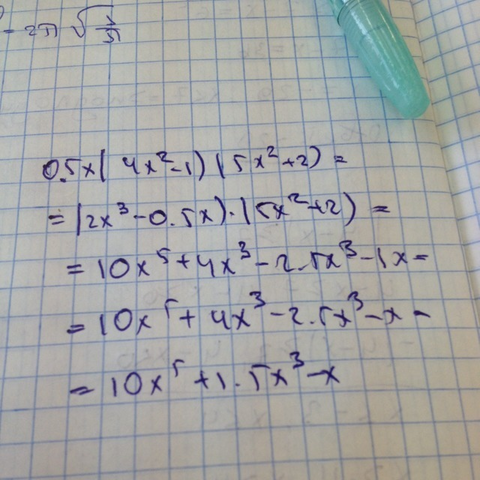 - 2π √3/5l
0.5x(4x²-1)(5x²+2)=
=(2x³-0.5x)·(5x²+2)=
=10x⁵+4x³-2.5x³-1x=
=10x⁵+4x³-2.5x³-x=
=10x⁵+1.5x³-x